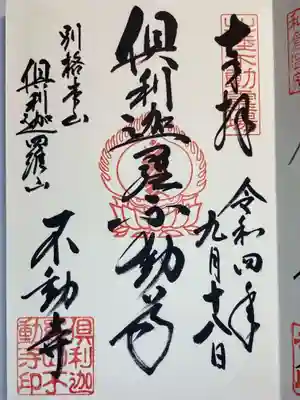 奉拝
令和四年
九月十八日
俱利迦羅不動尊
別格本山
俱利迦羅山
不動寺
俱利迦
羅山不
動寺印